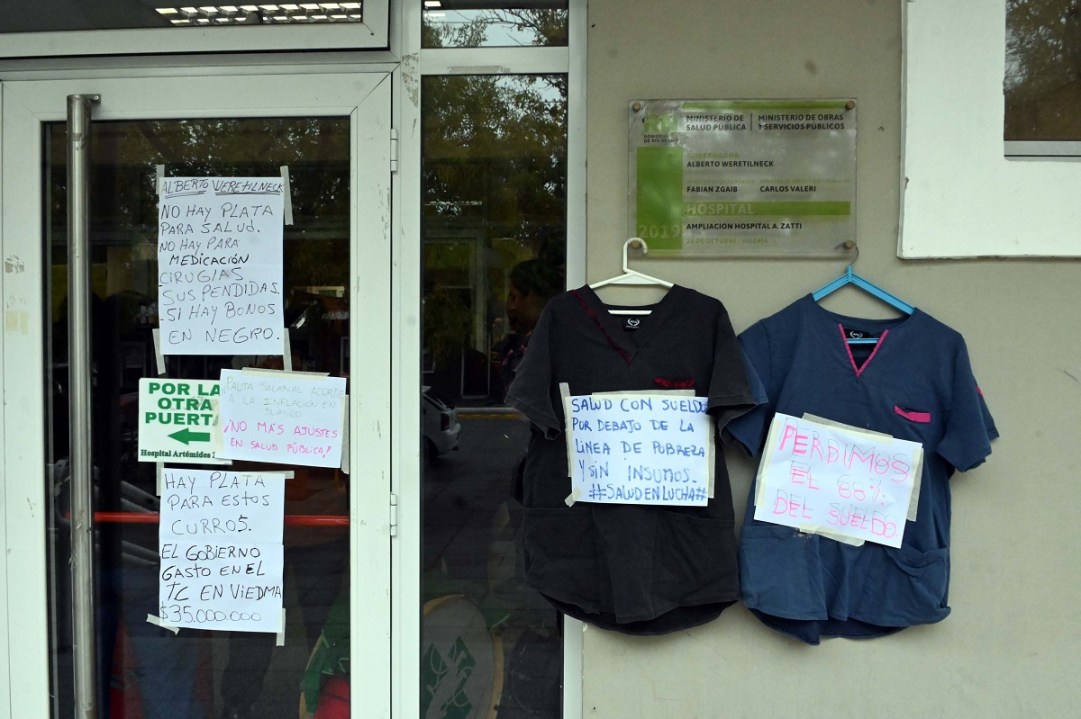 ALBERTO WERETILNECK
NO HAY PLATA
PARA SALUD.
NO HAY PARA
MEDICACIÓN
CIRUGIAS
SUSPENDIDAS.
SI HAY BONOS
EN NEGRO.
POR LA
OTRA
PUERTA
Hospital Artémides
PAUTA SALARIAL ACORDE
A LA INFLACIÓN EN
BLANCO
¡NO MÁS AJUSTES
EN SALUD PÚBLICA!
HAY PLATA
PARA ESTOS
CURROS.
EL GOBIERNO
GASTO EN EL
TC EN VIEDMA
$35.000.000
MINISTERIO DE
SALUD PÚBLICA
MINISTERIO DE OBRAS
Y SERVICIOS PÚBLICOS
GOBERNADOR
ALBERTO WERETILNECK
FABIAN ZGAIB CARLOS VALERI
HOSPITAL
2019
AMPLIACION HOSPITAL A. ZATTI
SALUD CON SUELDO
POR DEBAJO DE LA
LINEA DE POBREZA
Y SIN INSUMOS.
#SALUDENLUCHA#
PERDIMOS
EL 66%
DEL SUELDO